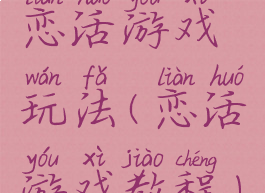 liàn huó yóu xì
恋活游戏
wán fǎ liàn huó
玩法(恋活
yóu xì jiào chéng
游戏教程)